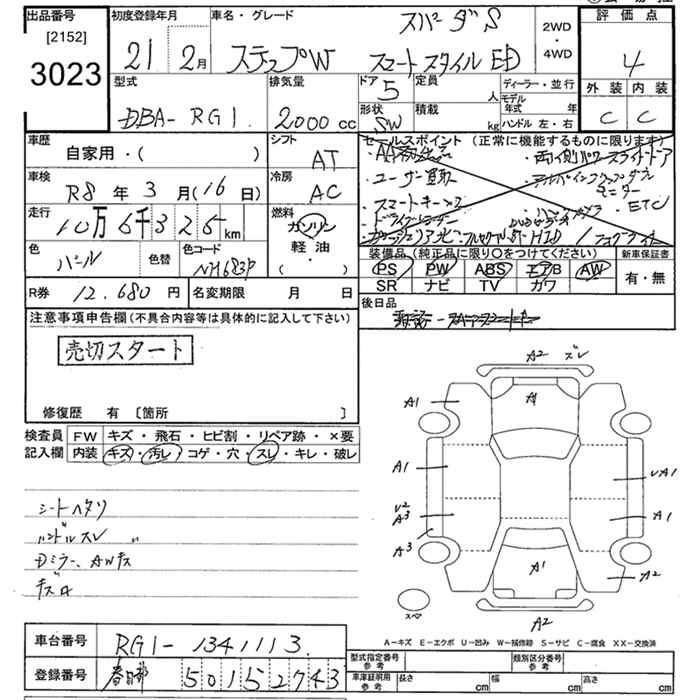 出品番号
[2152]
3023
初度登録年月
21 2月
車名・グレード
スパーダS
ステップW スマートスタイル ED
2WD
・
4WD
評価点
4
外装 内装
C C
型式
DBA- RG1
排気量
2000 cc
ドア 5
形状 SW
定員 人
積載 kg
ディーラー・並行
モデル年式 年
ハンドル 左・右
車歴
自家用・( )
シフト
AT
車検
R8年 3月(16日)
冷房
AC
走行
10万6千325km
燃料
ガソリン
軽油・
( )
色
パール
色替
色コード
NH683P
R券 12.680円
名変期限 月 日
セールスポイント(正常に機能するものに限ります)
ユーザー買取
スマートキーx2
ETC
装備品(純正品に限り○をつけてください)
新車保証書
PS PW ABS エアB AW
SR ナビ TV 革 
有・無
後日品
注意事項申告欄(不具合内容等は具体的に記入して下さい)
売切スタート
修復歴 有 〔箇所 〕
検査員記入欄
FW キズ・飛石・ヒビ割・リペア跡・×要
内装 キズ・汚レ・コゲ・穴・スレ・キレ・破レ
シートヘタリ
ハンドルスレ 〃
Dミラー、AWキズ
A2 ズレ
A1
A1
A1
UA1
U2
A3
A1
A3
A1
A2
A2
スペア
A-キズ E-エクボ U-凹み W-補修跡 S-サビ C-腐食 XX-交換済
車台番号
RG1-1341113
登録番号
春日部 501 5 2743
型式指定番号
参考
類別区分番号
参考
車庫証明用
参考
長さ cm 幅 cm 高さ cm